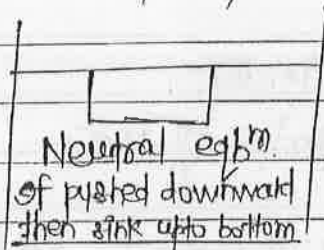 Neutral eqbᵐ.
If pushed downward
then sink upto bottom